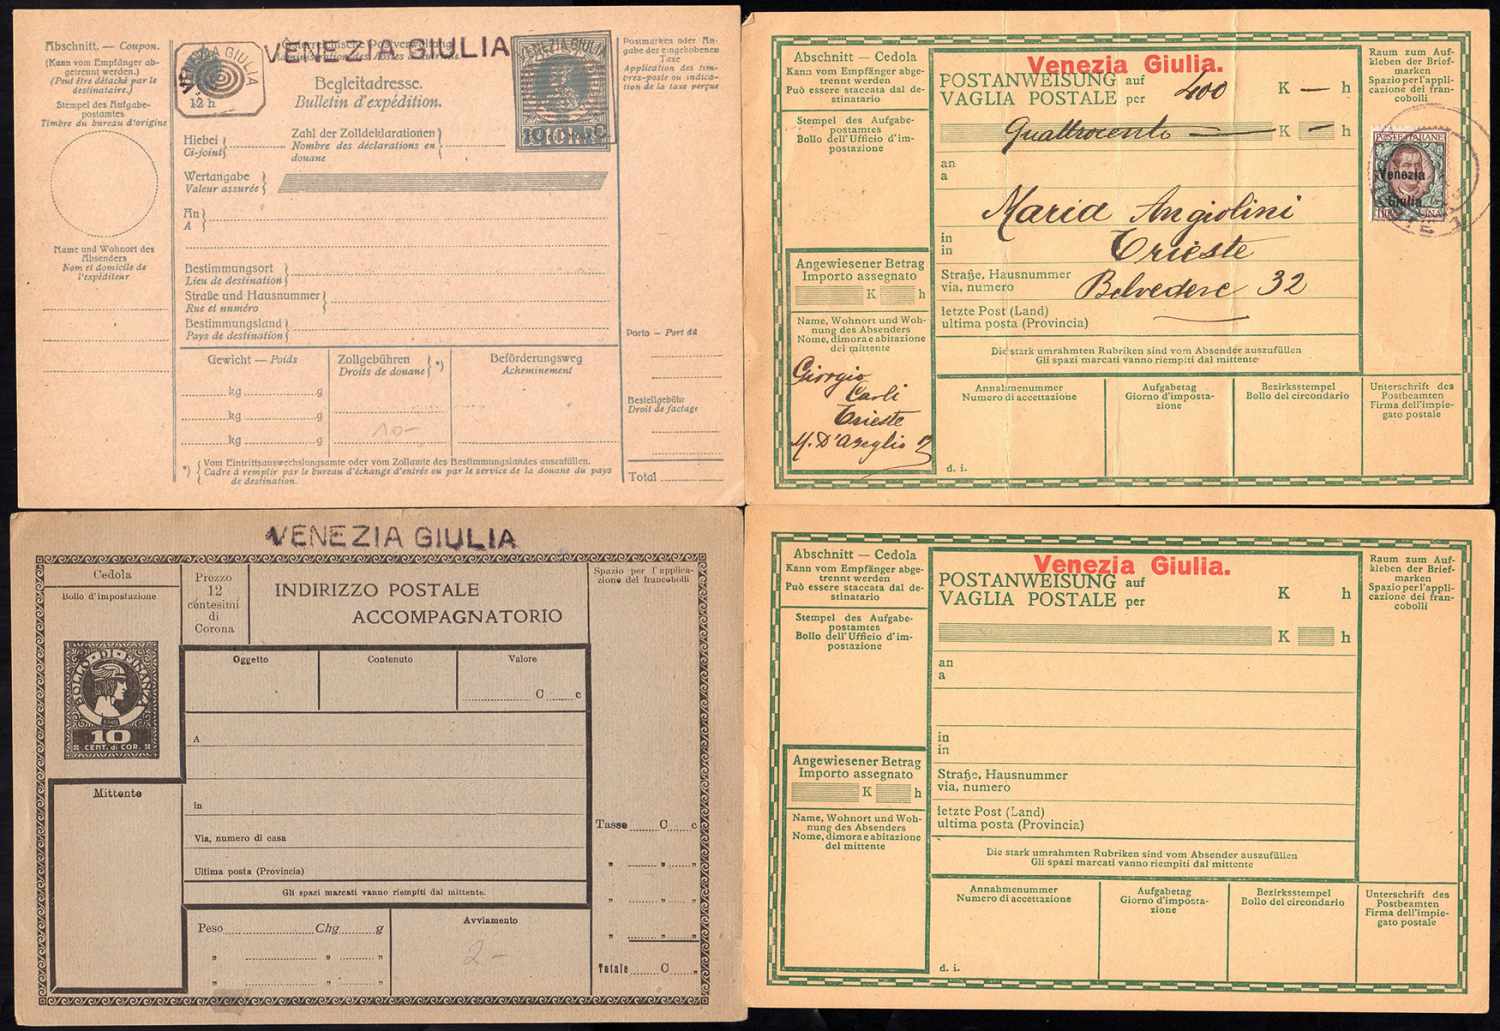 VENEZIA GIULIA
Abschnitt. — Coupon.
(Kann vom Empfänger ab-
getrennt werden.)
(Peut être détaché par le
destinataire.)
Stempel des Aufgabe-
postamtes
Timbre du bureau d'origine
Name und Wohnort des
Absenders
Nom et domicile de
l'expéditeur
VENEZIA GIULIA
12 h
Begleitadresse.
Bulletin d'expédition.
VENEZIA GIULIA
Postmarken oder An-
gabe der eingehobenen
Taxe
Application des tim-
bres-poste ou indica-
tion de la taxe perçue
Hiebei
Ci-joint
Zahl der Zolldeklarationen
Nombre des déclarations en
douane
Wertangabe
Valeur assurée
An
A
Bestimmungsort
Lieu de destination
Straße und Hausnummer
Rue et numéro
Bestimmungsland
Pays de destination
Porto — Port dû
Gewicht — Poids
Zollgebühren
Droits de douane *)
Beförderungsweg
Acheminement
kg g
kg g
kg g
10-
Bestellgebühr
Droit de factage
*) Vom Eintrittsauswechslungsamte oder vom Zollamte des Bestimmungslandes auszufüllen.
Cadre à remplir par le bureau d'échange d'entrée ou par le service de la douane du pays
de destination.
Total
Abschnitt — Cedola
Kann vom Empfänger abge-
trennt werden
Può essere staccata dal de-
stinatario
Stempel des Aufgabe-
postamtes
Bollo dell'Ufficio d'im-
postazione
Angewiesener Betrag
Importo assegnato
K h
Name, Wohnort und Woh-
nung des Absenders
Nome, dimora e abitazione
del mittente
Giorgio
Carli
Trieste
M. D'Azeglio
Venezia Giulia.
POSTANWEISUNG auf
VAGLIA POSTALE per
400 K — h
Quattrocento — K — h
an
a
Maria Angiolini
in
in
Trieste
Straße, Hausnummer
via, numero
Belvedere 32
letzte Post (Land)
ultima posta (Provincia)
Die stark umrahmten Rubriken sind vom Absender auszufüllen
Gli spazi marcati vanno riempiti dal mittente
Annahmenummer
Numero di accettazione
Aufgabetag
Giorno d'imposta-
zione
Bezirksstempel
Bollo del circondario
d. i.
Raum zum Auf-
kleben der Brief-
marken
Spazio per l'appli-
cazione dei fran-
cobolli
POSTE ITALIANE
Venezia
Giulia
Unterschrift des
Postbeamten
Firma dell'impie-
gato postale
VENEZIA GIULIA
Cedola
Bollo d'impostazione
Prezzo
12
centesimi
di
Corona
INDIRIZZO POSTALE
ACCOMPAGNATORIO
Spazio per l'applica-
zione dei francobolli
BOLLO DI FINANZA
10
CENT. di COR.
Oggetto
Contenuto
Valore
C c
A
Mittente
in
Via, numero di casa
Ultima posta (Provincia)
Gli spazi marcati vanno riempiti dal mittente.
Tasse C c
" "
" "
" "
" "
Totale C "
Peso Chg. g
" " "
" " "
Avviamento
2-
Abschnitt — Cedola
Kann vom Empfänger abge-
trennt werden
Può essere staccata dal de-
stinatario
Stempel des Aufgabe-
postamtes
Bollo dell'Ufficio d'im-
postazione
Angewiesener Betrag
Importo assegnato
K h
Name, Wohnort und Woh-
nung des Absenders
Nome, dimora e abitazione
del mittente
Venezia Giulia.
POSTANWEISUNG auf
VAGLIA POSTALE per
K h
K h
an
a
in
in
Straße, Hausnummer
via, numero
letzte Post (Land)
ultima posta (Provincia)
Die stark umrahmten Rubriken sind vom Absender auszufüllen
Gli spazi marcati vanno riempiti dal mittente
Annahmenummer
Numero di accettazione
Aufgabetag
Giorno d'imposta-
zione
Bezirksstempel
Bollo del circondario
d. i.
Raum zum Auf-
kleben der Brief-
marken
Spazio per l'appli-
cazione dei fran-
cobolli
Unterschrift des
Postbeamten
Firma dell'impie-
gato postale